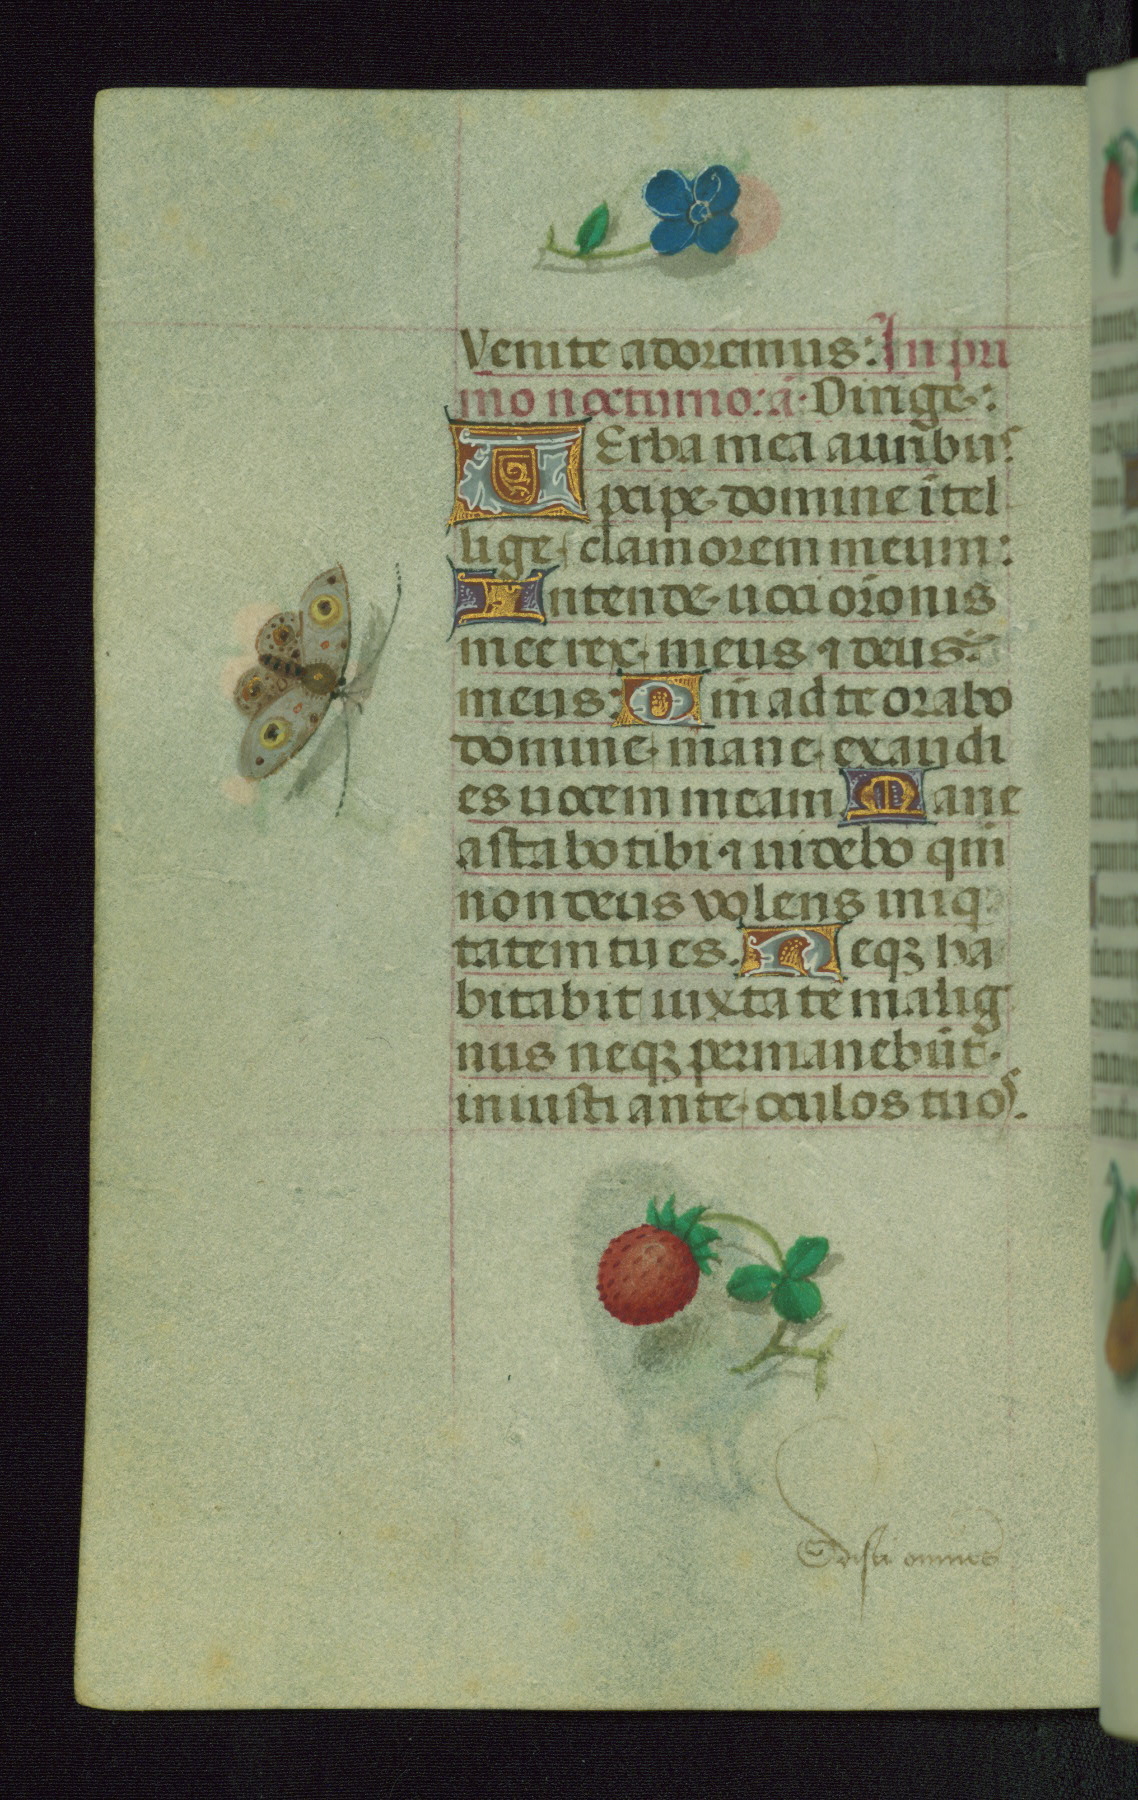 Venite adoremus: In pri
mo nocturno: ā. Dirige:
Verba mea auribus
percipe domine ītel
lige clamorem meum:
Intende uoci orōnis
mee rex meus ⁊ deus
meus: Qm̄ ad te orabo
domine mane exaudi
es uocem meam Mane
astabo tibi ⁊ uidebo qm̄
non deus volens iniq
tatem tu es. Neqꝫ ha
bitabit iuxta te malig
nus neqꝫ permanebūt
iniusti ante oculos tuos.
Odisti omnes